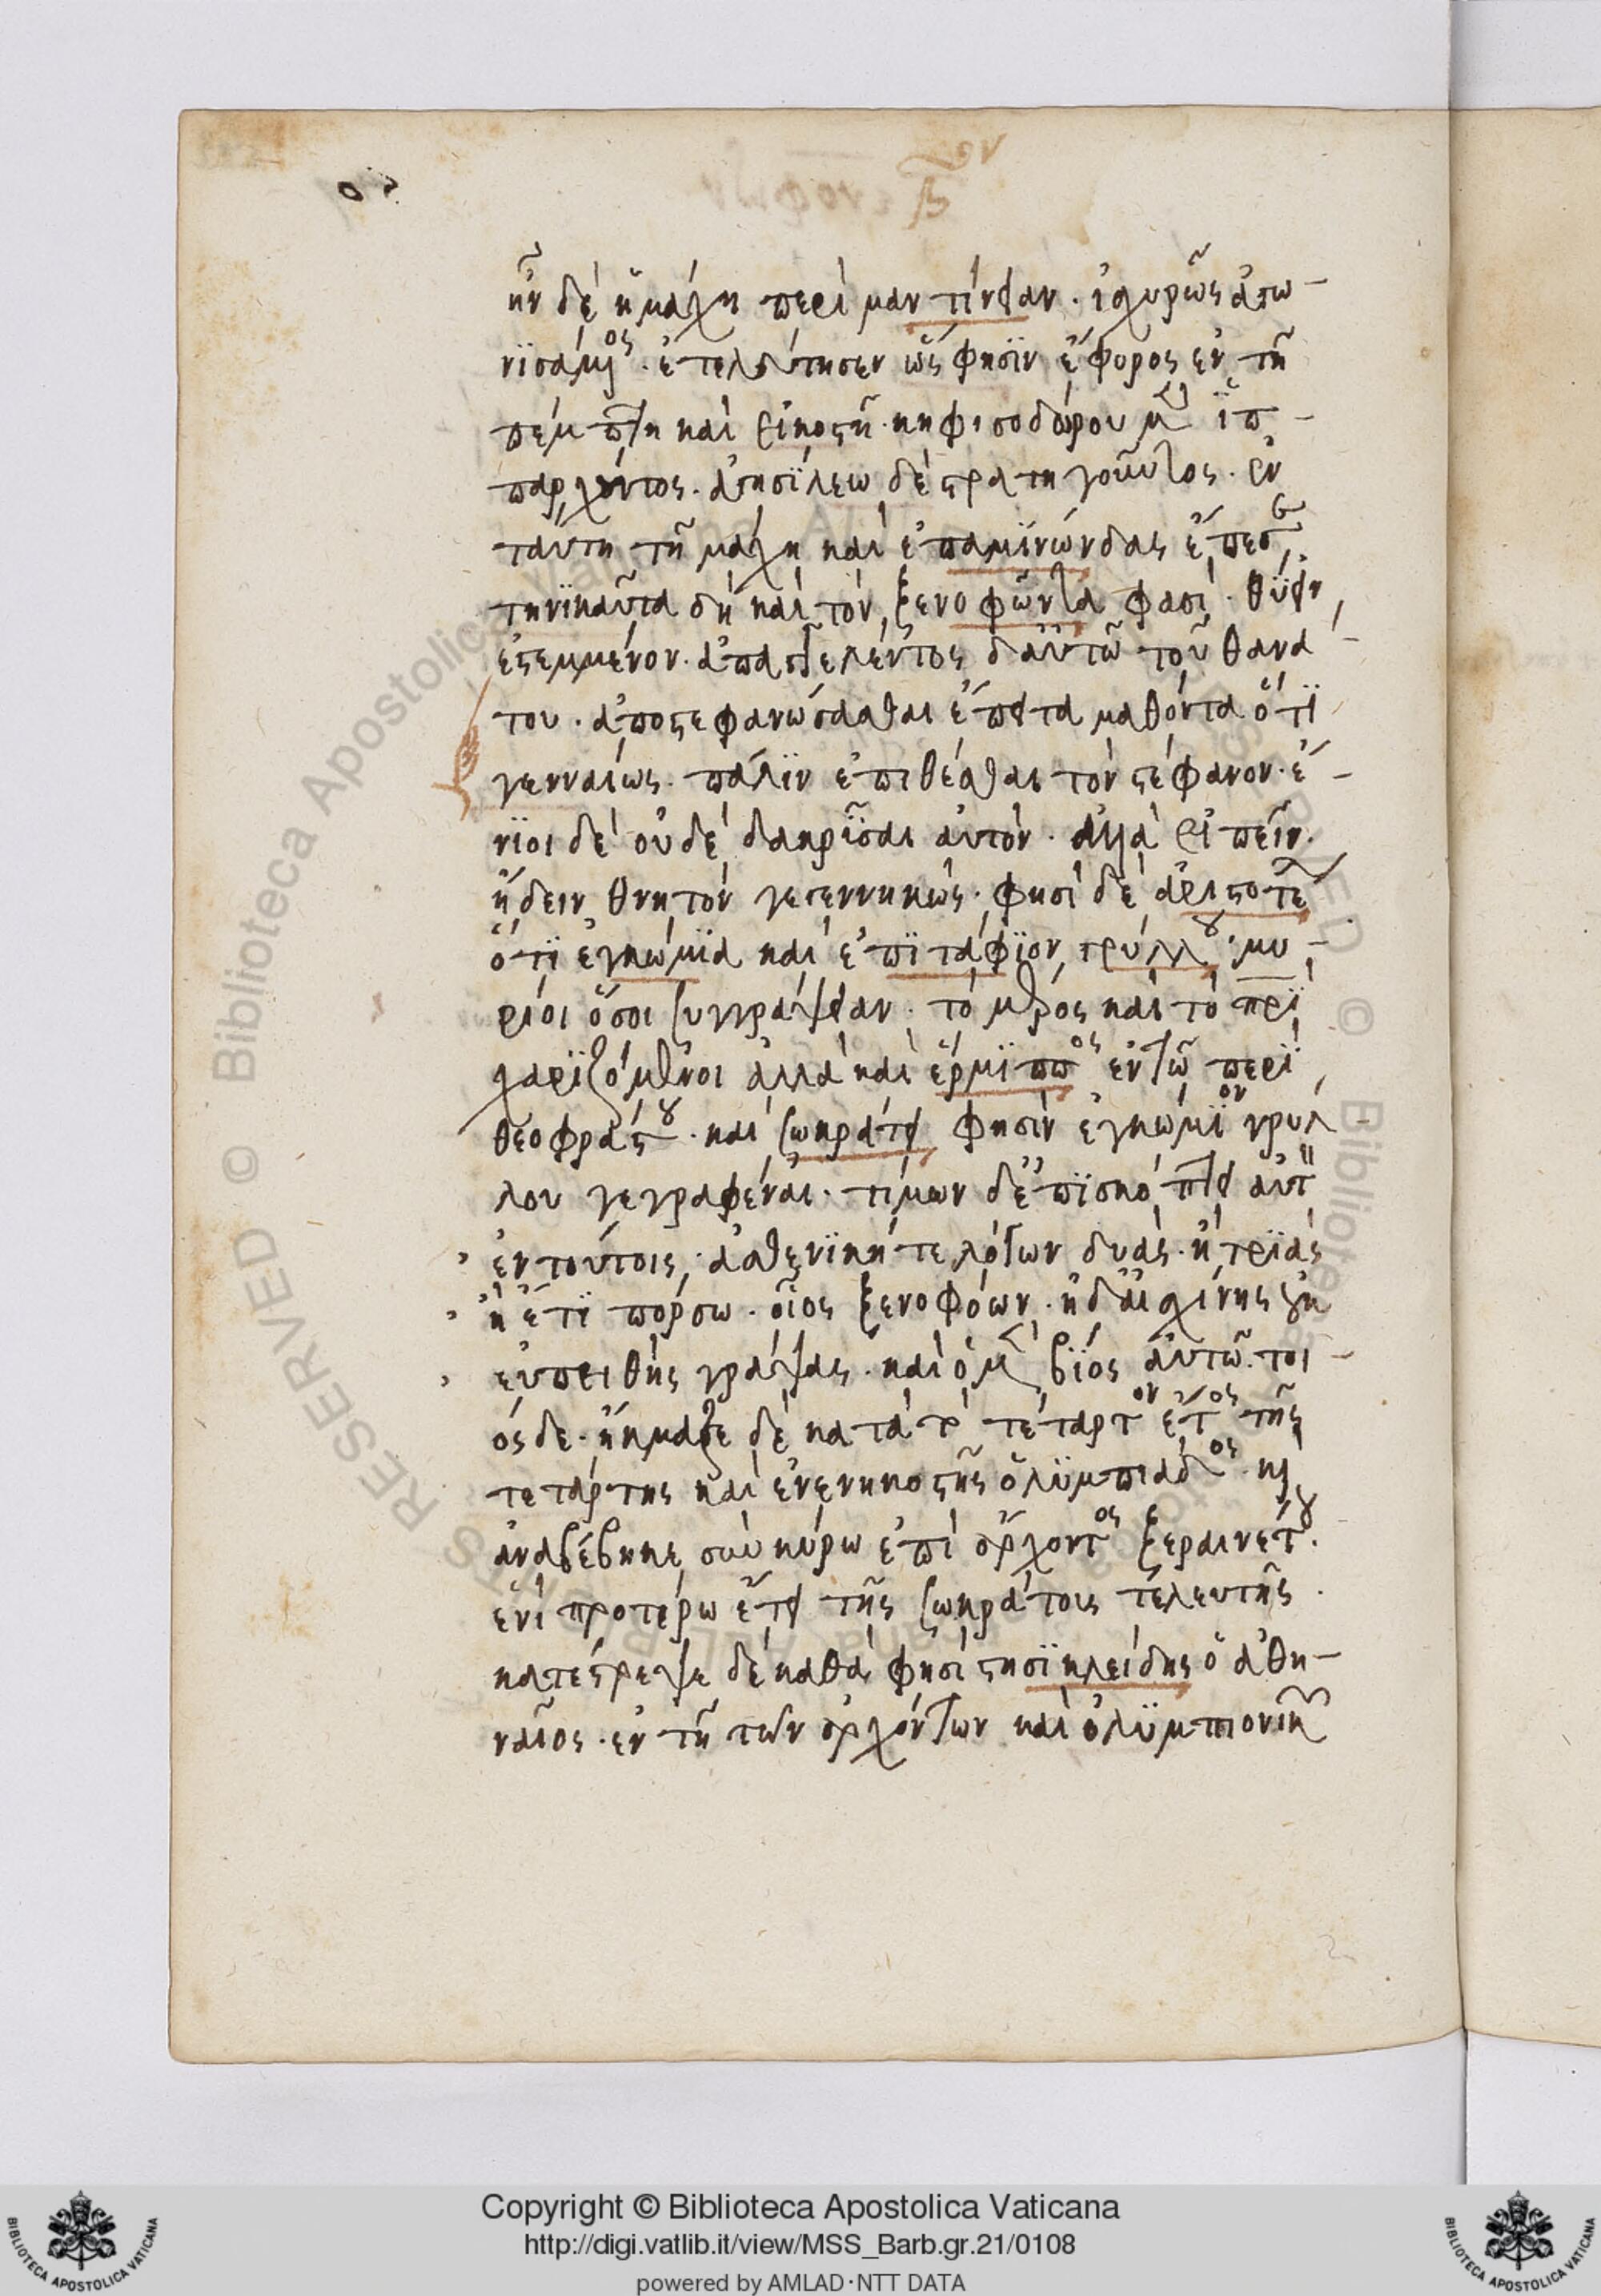 ἦν δὲ ἡ μάχη περὶ μαντίνειαν. ἰσχυρῶς ἀγω-
νϊσάμενος. ἐτελεύτησεν ὥς φησϊν ἔφορος ἐν τῆ
πέμπτη καὶ εἰκοστῆ. κηφισοδώρου μὲν ἱπ-
παρχόντος. ἁγησϊλεω δὲ στρατηγοῦντος. ἐν
ταύτη τῆ μάχη καὶ ἐπαμϊνώνδας ἔπεσε.
τηνϊκαῦτα δὴ καὶ τὸν ξενοφῶντά φασι. θύειν
ἐστεμμένον. ἀπαγγελέντος δ' αὐτῶ τοῦ θανά-
του. ἀποστεφανώσασθαι ἔπειτα μαθόντα ὅτϊ
γενναίως. πάλϊν ἐπιθέσθαι τὸν στέφανον. ἔ-
νϊοι δὲ οὐδὲ δακρῦσαι αὐτόν. ἀλλὰ εἰπεῖν.
ἤδειν θνητὸν γεγεννηκώς. φησὶ δὲ ἀριστοτε
ὅτϊ ἐγκώμϊα καὶ ἐπϊτάφϊον γρύλλου. μυ-
ρίοι ὅσοι συνγράψειαν. τὸ μέρος καὶ τὸ πρὶ
χαρϊζόμενοι ἀλλὰ καὶ ἕρμϊππος ἐν τῶ περὶ
θεοφράστου. καὶ σωκράτει φησὶν ἐγκώμϊον γρυλ-
λου γεγραφέναι. τίμων δ' ἐπϊσκόπτει αὐτ
ἐν τούτοις, ἀσθενϊκή τε λόγων δυάς. ἢ τρϊάς
ἢ ἔτϊ πόρσω. οἷος ξενοφόων. ἠδ' αἰσχίνης
εὐπειθὴς γράψας. καὶ ὁ μὲν βίος αὐτῶ. τοι-
όςδε. ἤκμαζε δὲ κατὰ τὸ τέταρτον ἔτος τῆς
τετάρτης καὶ ἐνενηκοστῆς ὀλϋμπιάδος. καὶ
ἀναβέβηκε σὺν κύρω ἐπὶ ἄρχοντος ξεραινέτου.
ἑνὶ προτέρω ἔτει τῆς σωκράτοις τελευτῆς.
κατέστρεψε δὲ καθά φησι στησϊκλείδης ὁ ἀθη-
ναῖος. ἐν τῆ τῶν ἀρχόντων καὶ ὀλϋμπιονικ
Copyright © Biblioteca Apostolica Vaticana
http://digi.vatlib.it/view/MSS_Barb.gr.21/0108
powered by AMLAD·NTT DATA